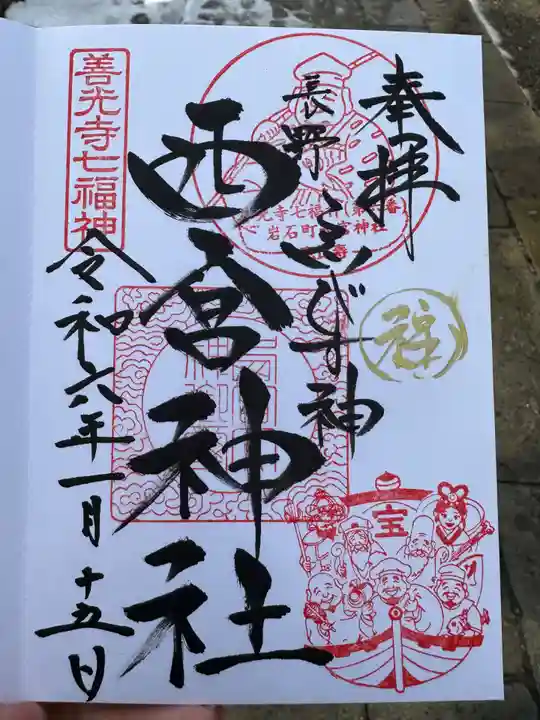 奉拝
長野
ゑびす神
西宮神社
令和六年一月十五日
善光寺七福神
岩石町
神社
福
宝